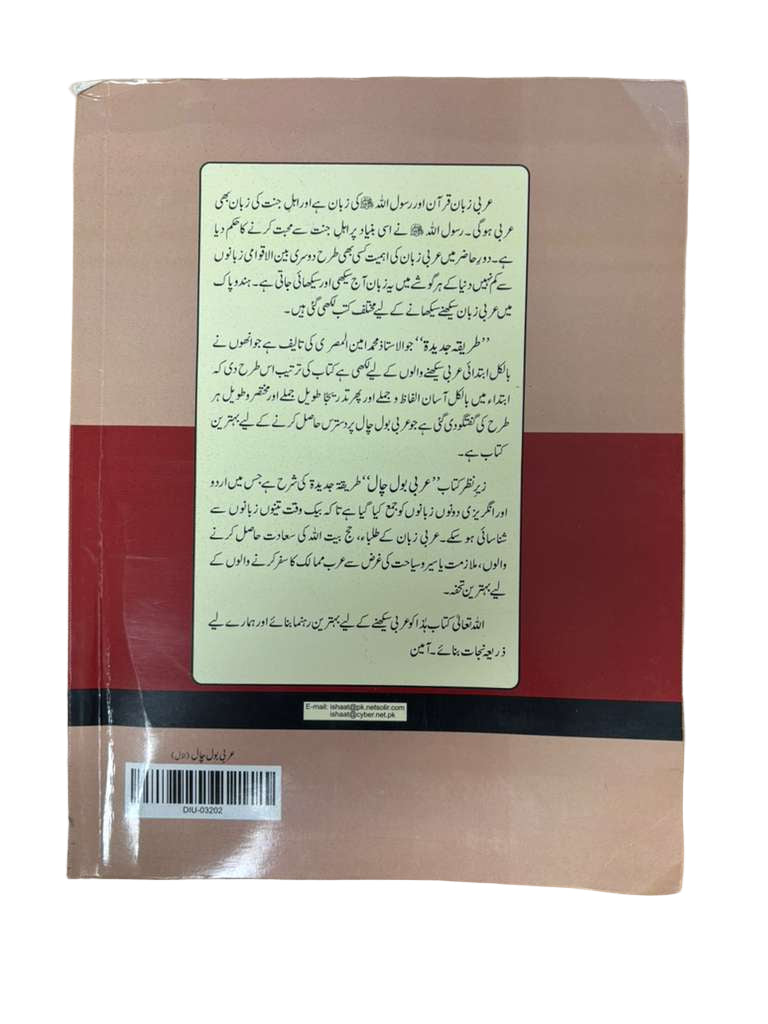 عربی زبان قرآن اور رسول اللہ ﷺ کی زبان ہے اور اہل جنت کی زبان بھی
عربی ہوگی۔ رسول اللہ ﷺ نے اسی بنیاد پر اہل جنت سے محبت کرنے کا حکم دیا
ہے۔ دورِ حاضر میں عربی زبان کی اہمیت کسی بھی طرح دوسری بین الاقوامی زبانوں
سے کم نہیں دنیا کے ہر گوشے میں یہ زبان آج سیکھی اور سیکھائی جاتی ہے۔ ہندو پاک
میں عربی زبان سیکھنے سیکھانے کے لیے مختلف کتب لکھی گئی ہیں۔
”طریقہ جدیدۃ“ جو الاستاذ محمد امین المصری کی تالیف ہے جو انھوں نے
بالکل ابتدائی عربی سیکھنے والوں کے لیے لکھی ہے کتاب کی ترتیب اس طرح دی کہ
ابتداء میں بالکل آسان الفاظ و جملے اور پھر تدریجًا طویل جملے اور مختصر و طویل ہر
طرح کی گفتگو دی گئی ہے جو عربی بول چال پر دسترس حاصل کرنے کے لیے بہترین
کتاب ہے۔
زیرِ نظر کتاب ”عربی بول چال“ طریقۃ جدیدۃ کی شرح ہے جس میں اردو
اور انگریزی دونوں زبانوں کو جمع کیا گیا ہے تاکہ بیک وقت تینوں زبانوں سے
شناسائی ہو سکے۔ عربی زبان کے طلباء، حج بیت اللہ کی سعادت حاصل کرنے
والوں، ملازمت یا سیر و سیاحت کی غرض سے عرب ممالک کا سفر کرنے والوں کے
لیے بہترین تحفہ۔
اللہ تعالیٰ کتاب ہٰذا کو عربی سیکھنے کے لیے بہترین رہنما بنائے اور ہمارے لیے
ذریعہ نجات بنائے۔ آمین
E-mail: ishaat@pk.netsolir.com
ishaat@cyber.net.pk
عربی بول چال (اوّل)
DIU-03202